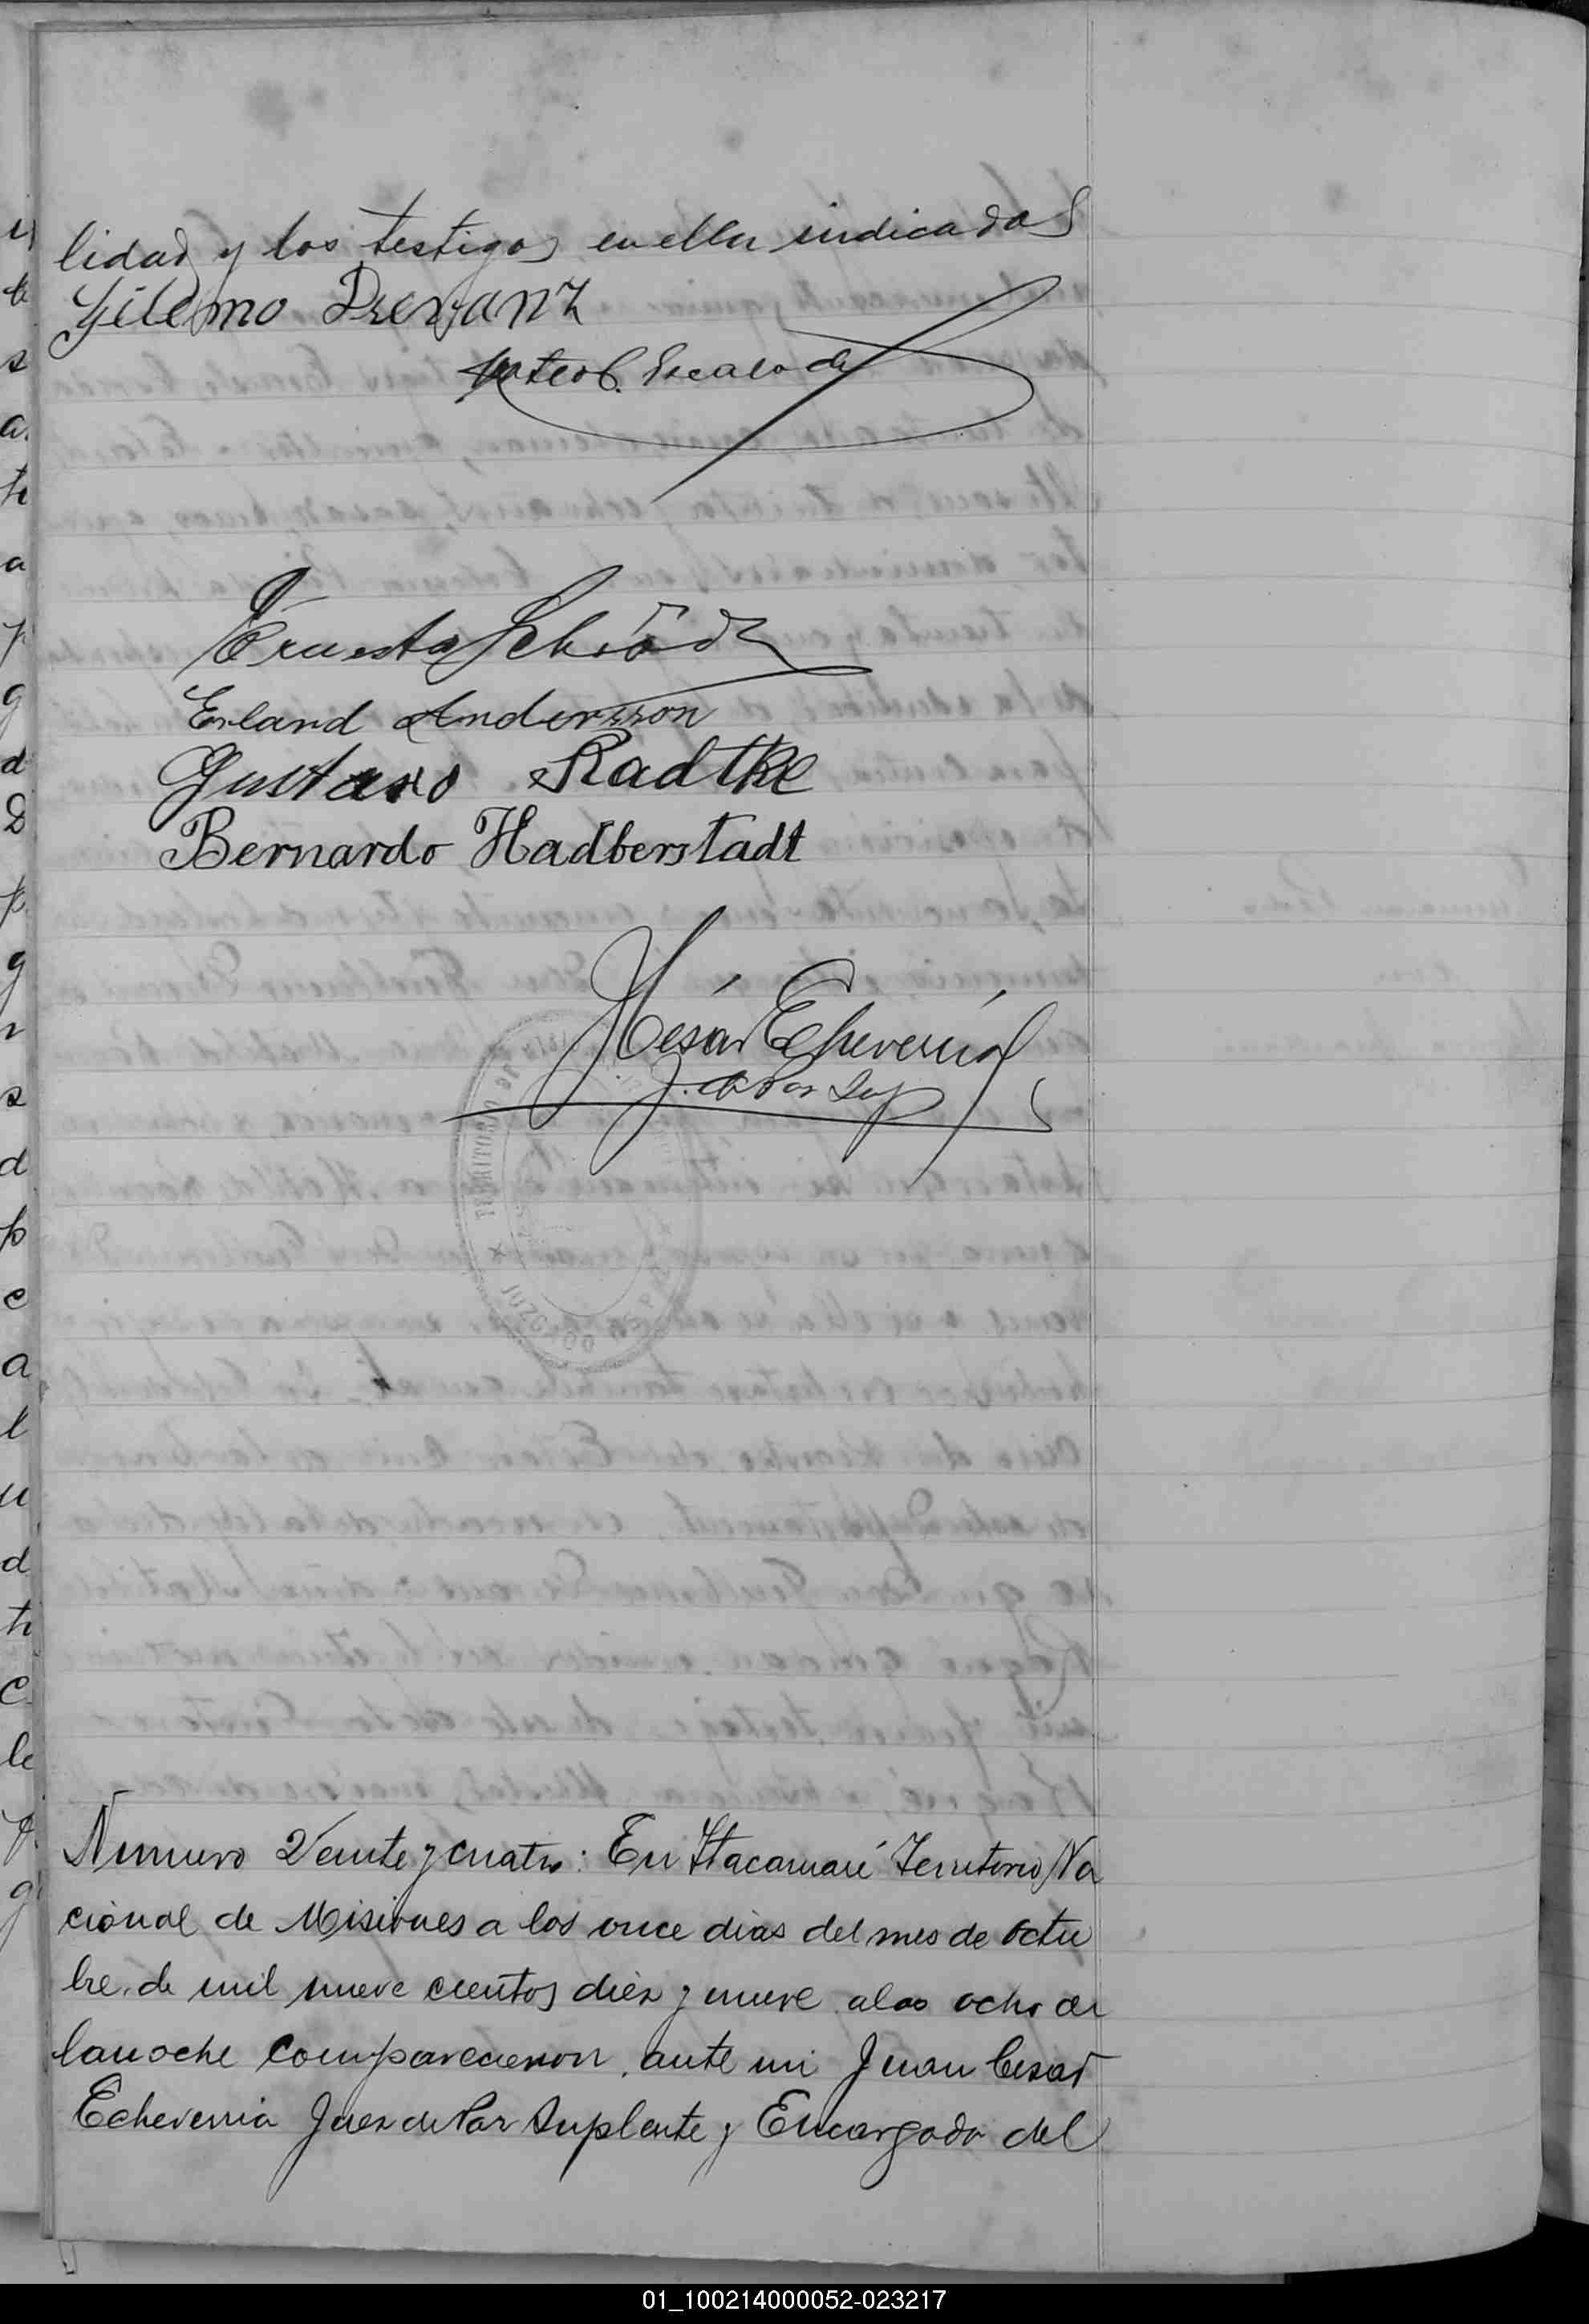 lidad y los testigos en ella indicados
Gilermo Drevanz
Mateo C. Escalada
Ernesto Schröd
Erland Andersson
Gustavo Radtke
Bernardo Hadberstadt
J Cesár Echeverría
J. de Paz Sup
TERRITORIO
JUZGADO DE PAZ
Numero Veinte y cuatro: En Itacaruaré Territorio Na
cional de Misiones a los once dias del mes de octu
bre de mil nueve cientos diez y nueve a las ocho de
la noche comparecieron ante mi Juan Cesar
Echeverria Juez de Paz Suplente y Encargado del
01_100214000052-023217